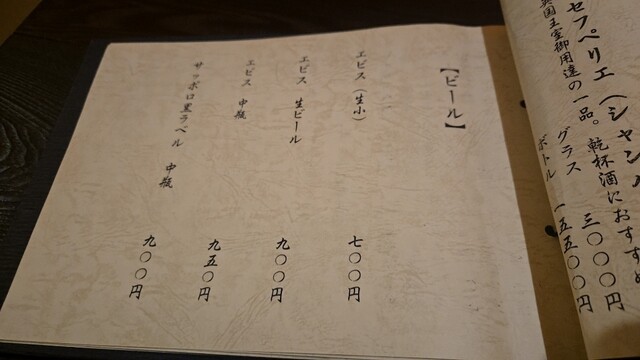 セフペリエ(シャン
英国王室御用達の一品。乾杯酒におすすめ
グラス 三〇〇〇円
ボトル 一五五〇〇円
【ビール】
エビス(生小) 七〇〇円
エビス 生ビール 九〇〇円
エビス 中瓶 九五〇円
サッポロ黒ラベル 中瓶 九〇〇円